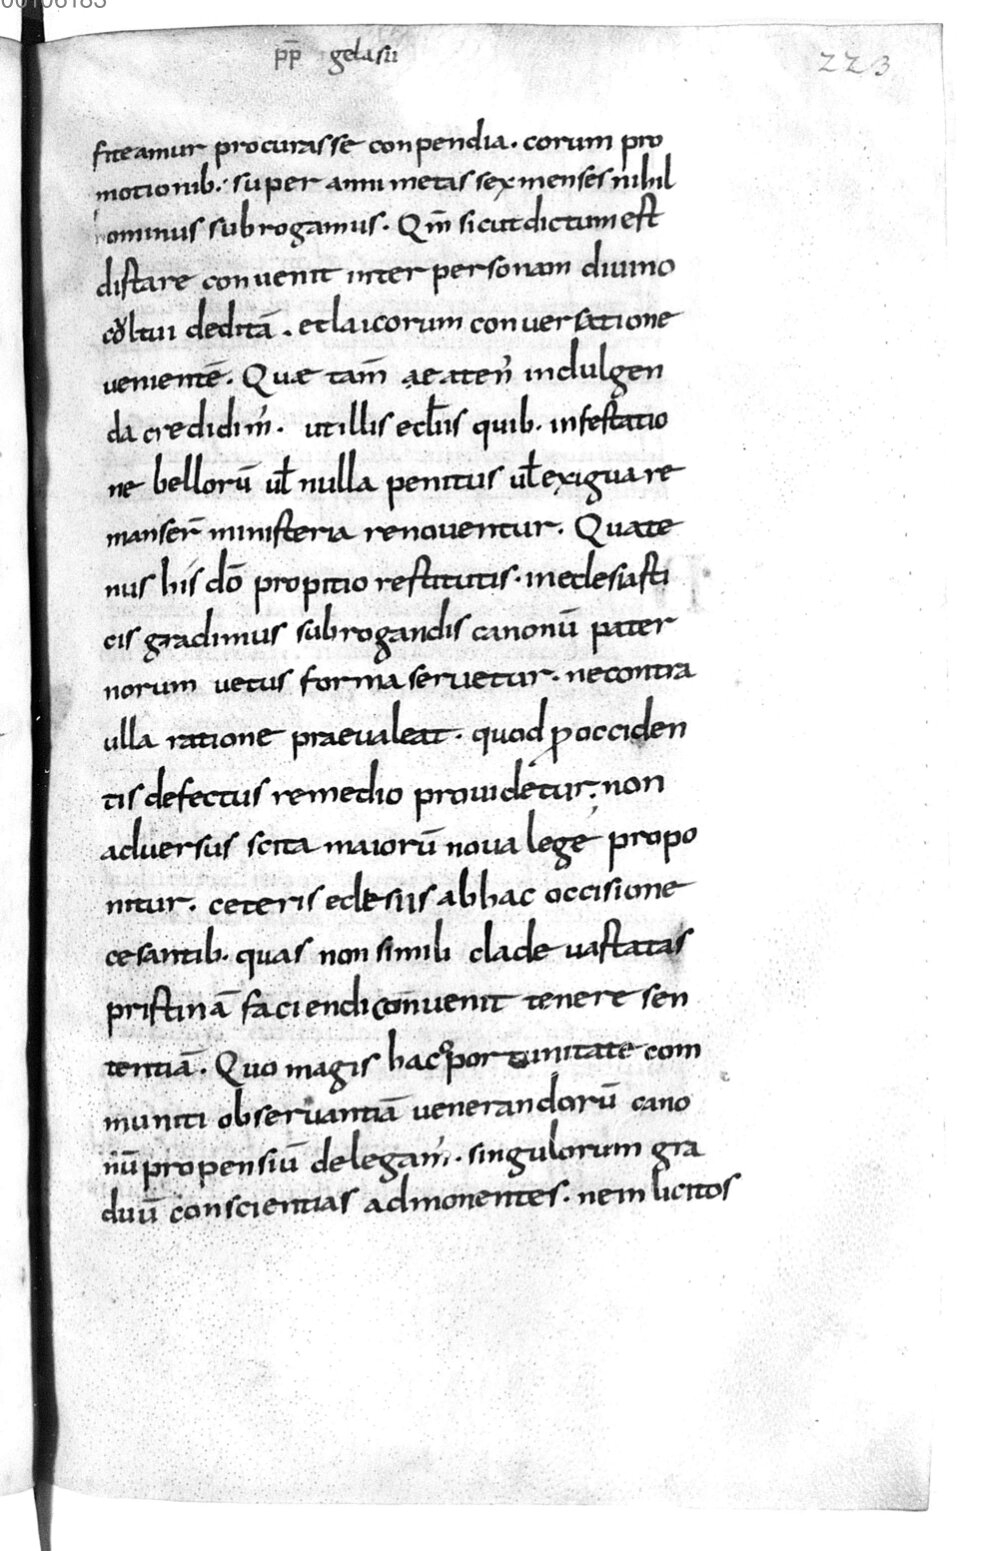 00106183
pp̄ gelasii
223
fiteamur procurasse conpendia. corum pro
motionib. super anni metas sex menses nihil
ominus subrogamus. Qm̄ sicut dictum est
distare conuenit inter personam diuino
cultui deditā. et laicorum conuersatione
uenientē. Quae tam̄ aeaten' indulgen
da credidim'. ut illis ecl̄iis quib. infestatio
ne bellorū ul̄ nulla penitus ul̄ exigua re
manser̄ ministeria renouentur. Quate
nus his dō propitio restitutis. in eclesiasti
cis gradimus subrogandis canonū pater
norum uetus forma seruetur. ne contra
ulla ratione praeualeat. quod ꝓ occiden
tis defectus remedio prouidetur; non
aduersus scita maiorū noua lege propo
nitur. ceteris eclesiis ab hac occisione
cesantib. quas non simili clade uastatas
pristinā faciendi conuenit tenere sen
tentiā. Quo magis hac oportunitate com
muniti obseruantiā uenerandorū cano
nū propensiū delegam'. singulorum gra
duū conscientias admonentes. ne in licitos